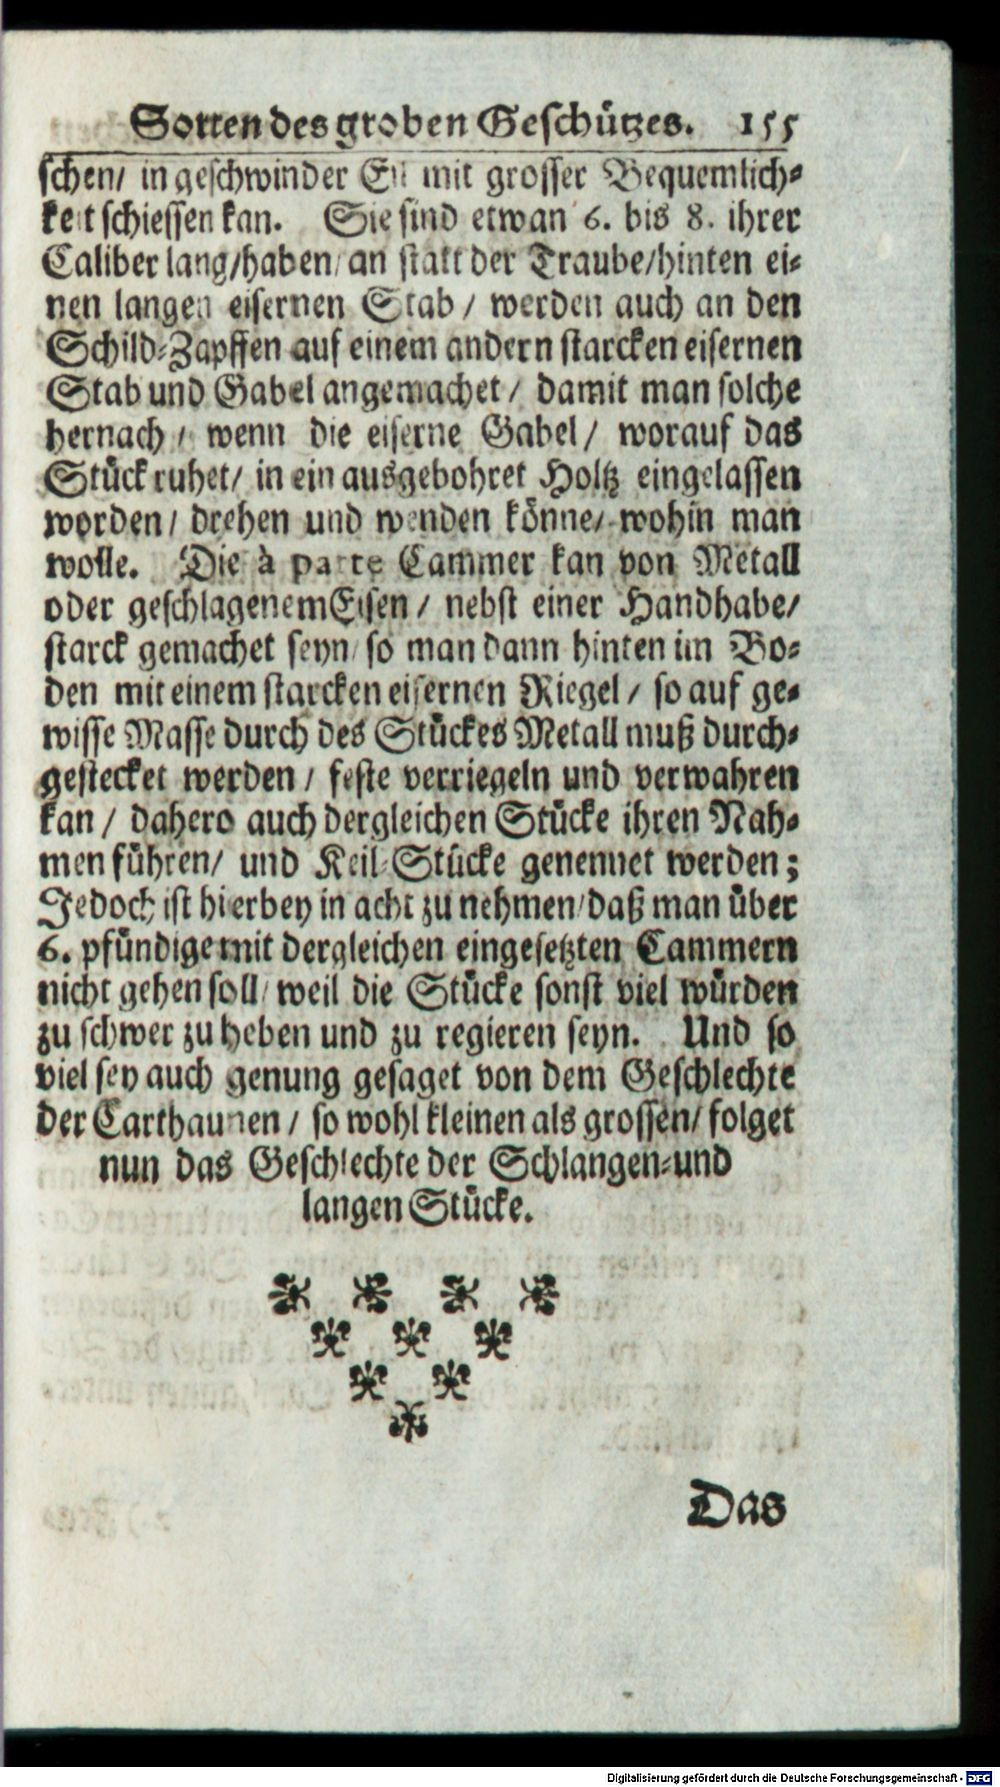 Sorten des groben Geschützes. 155
schen/ in geschwinder Eil mit grosser Bequemlich-
keit schiessen kan. Sie sind etwan 6. bis 8. ihrer
Caliber lang/haben/an statt der Traube/hinten ei-
nen langen eisernen Stab / werden auch an den
Schild-Zapffen auf einem andern starcken eisernen
Stab und Gabel angemachet / damit man solche
hernach / wenn die eiserne Gabel / worauf das
Stück ruhet/ in ein ausgebohret Holtz eingelassen
worden / drehen und wenden könne/ wohin man
wolle. Die à parte Cammer kan von Metall
oder geschlagenem Eisen / nebst einer Handhabe/
starck gemachet seyn/so man dann hinten im Bo-
den mit einem starcken eisernen Riegel / so auf ge-
wisse Masse durch des Stückes Metall muß durch-
gestecket werden / feste verriegeln und verwahren
kan / dahero auch dergleichen Stücke ihren Nah-
men führen/ und Keil-Stücke genennet werden;
Jedoch ist hierbey in acht zu nehmen/daß man über
6. pfündige mit dergleichen eingesetzten Cammern
nicht gehen soll/ weil die Stücke sonst viel würden
zu schwer zu heben und zu regieren seyn. Und so
viel sey auch genung gesaget von dem Geschlechte
der Carthaunen / so wohl kleinen als grossen/ folget
nun das Geschlechte der Schlangen-und
langen Stücke.
Das
Digitalisierung gefördert durch die Deutsche Forschungsgemeinschaft - DFG